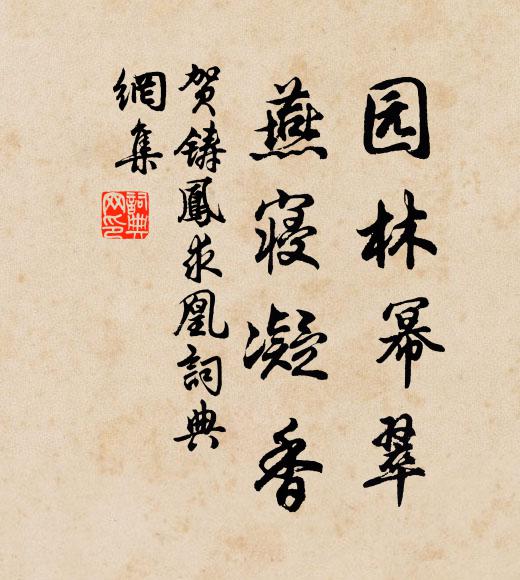 园林幂翠
燕寝凝香
贺铸鳳求凰詞典
網集
詞典
网印